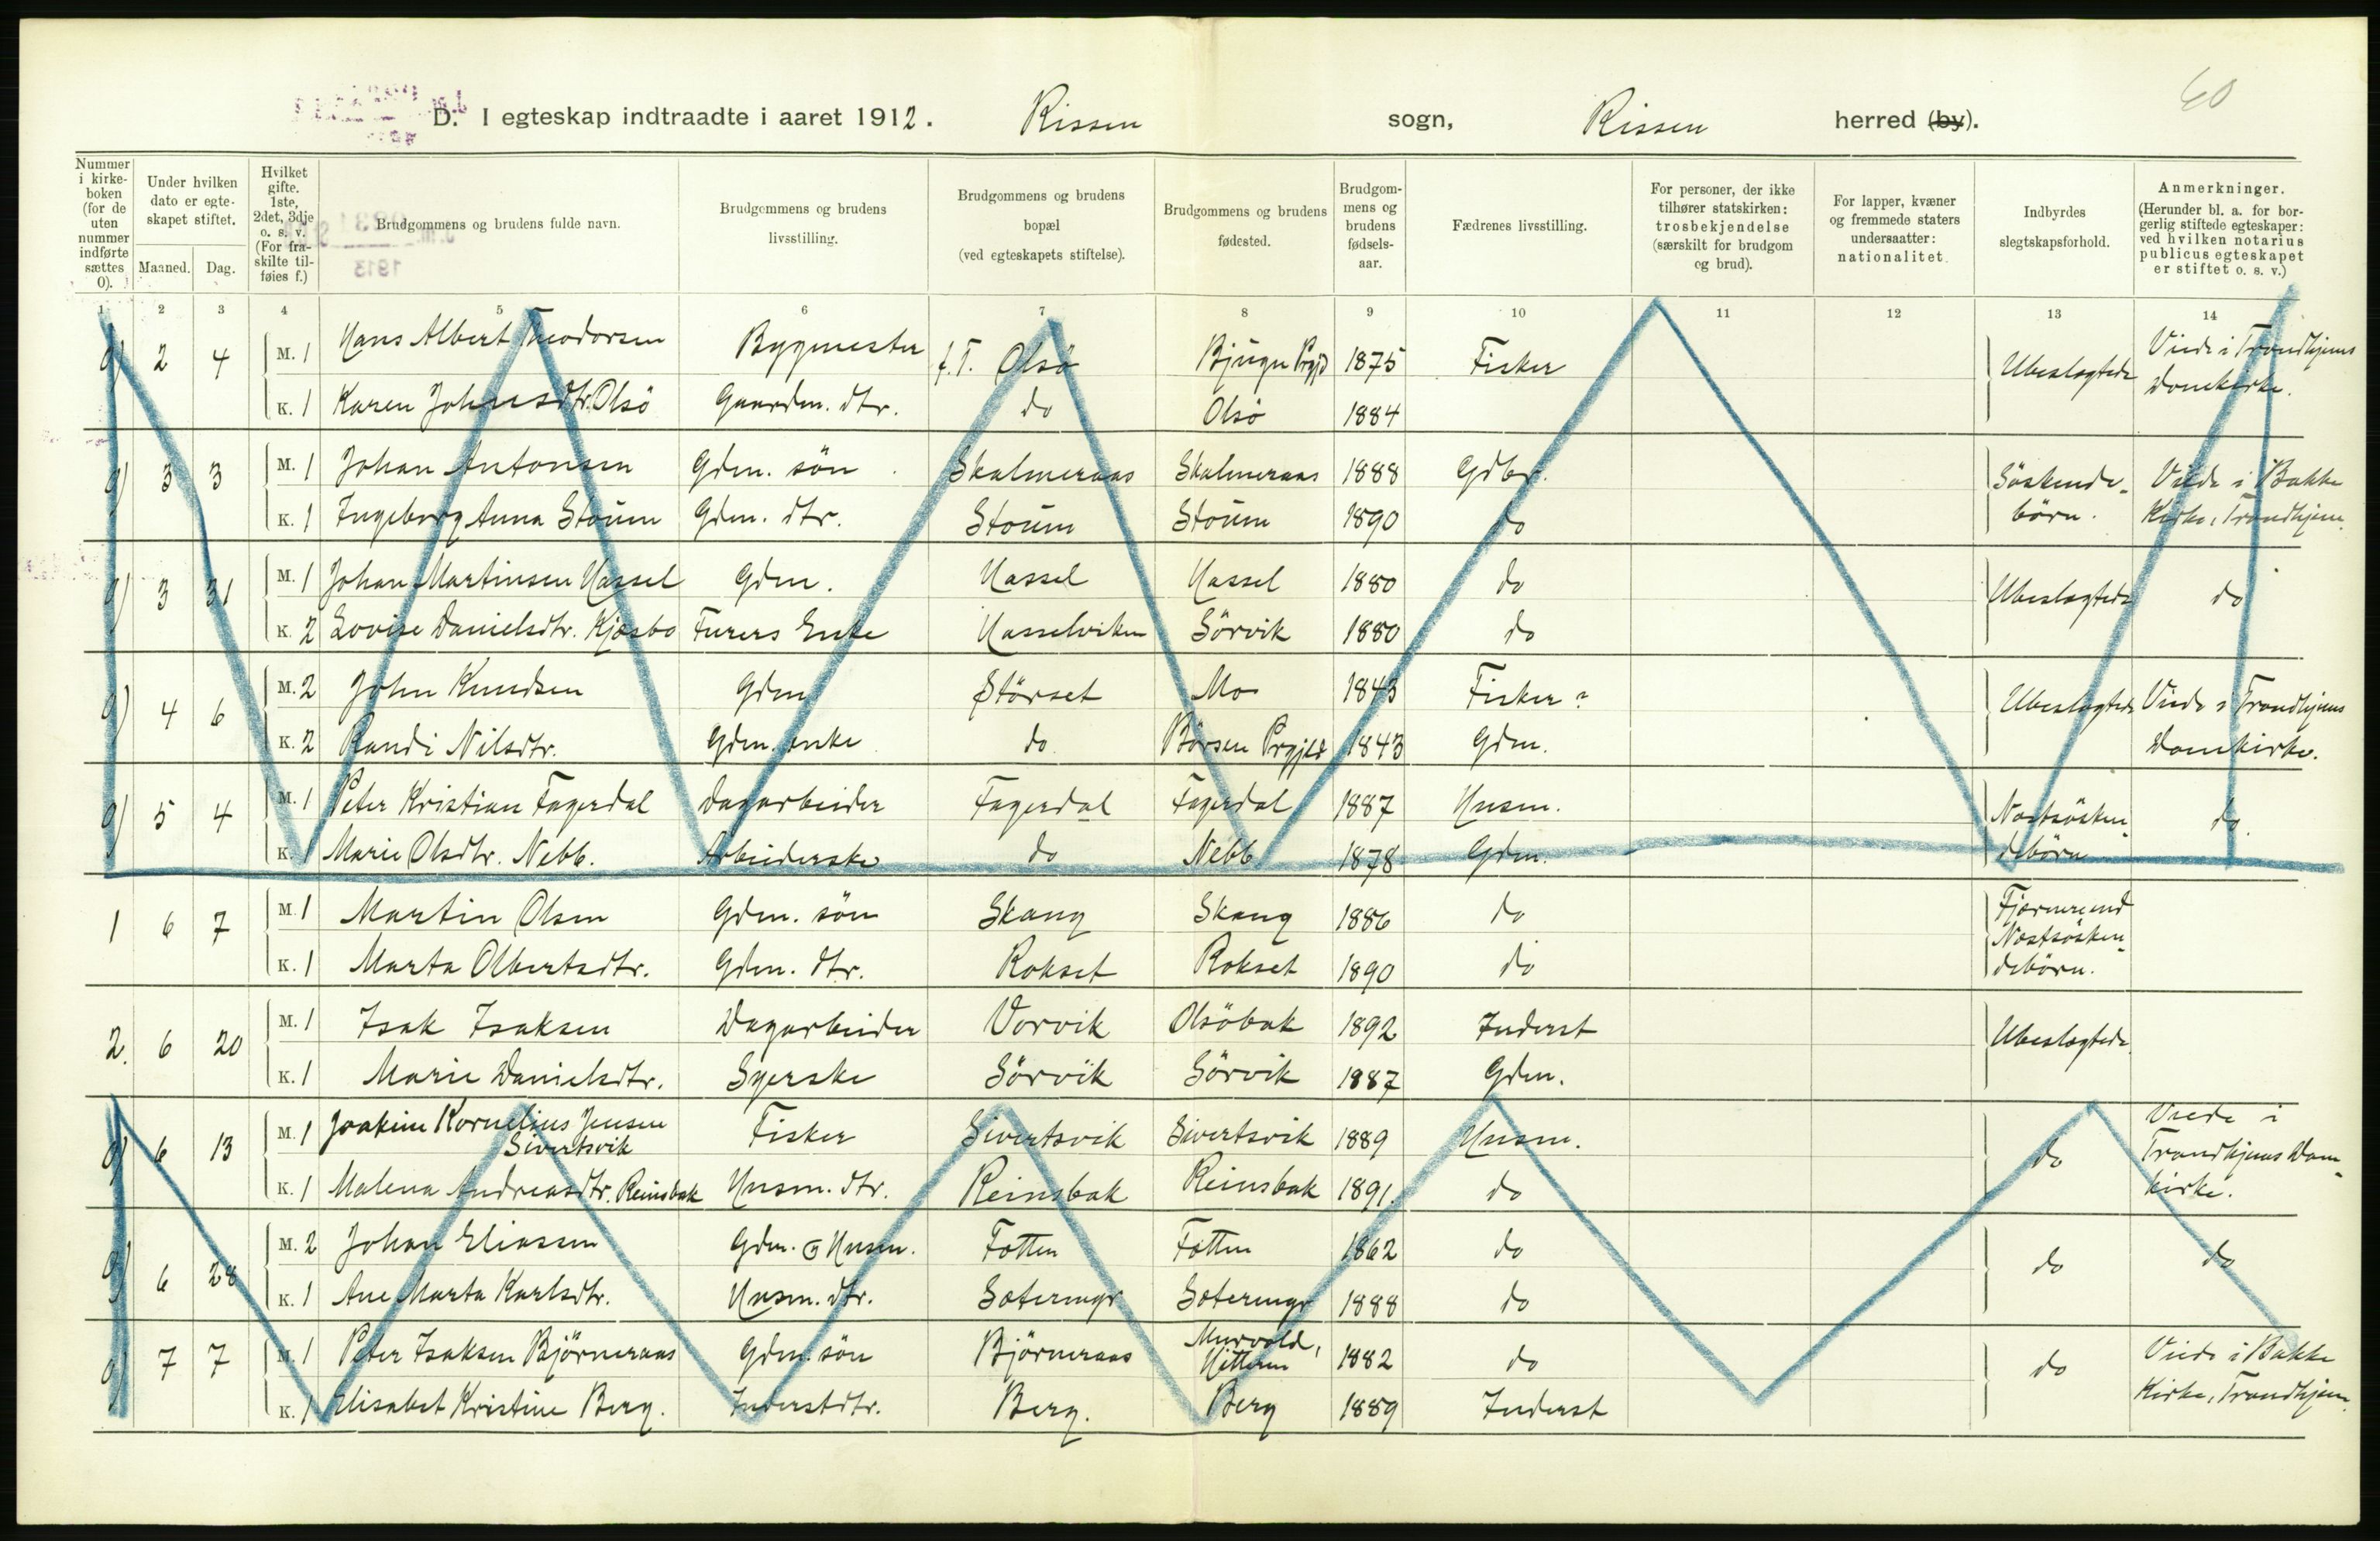 60
D. I egteskap indtraadte i aaret 1912. Rissen sogn, Rissen herred (by).
Nummer i kirkeboken (for de uten nummer indførte sættes 0).
Under hvilken dato er egteskapet stiftet.
Maaned. Dag.
Hvilket gifte. 1ste, 2det, 3dje o. s. v. (For fraskilte tilføies f.)
Brudgommens og brudens fulde navn.
Brudgommens og brudens livsstilling.
Brudgommens og brudens bopæl (ved egteskapets stiftelse).
Brudgommens og brudens fødested.
Brudgommens og brudens fødselsaar.
Fædrenes livsstilling.
For personer, der ikke tilhører statskirken: trosbekjendelse (særskilt for brudgom og brud).
For lapper, kvæner og fremmede staters undersaatter: nationalitet.
Indbyrdes slegtskapsforhold.
Anmerkninger. (Herunder bl. a. for borgerlig stiftede egteskaper: ved hvilken notarius publicus egteskapet er stiftet o. s. v.)
1 2 3 4 5 6 7 8 9 10 11 12 13 14
0) 2 4 M. 1 Hans Albert Theodorsen Bygmester f.T. Olsö Bjugn Prgjd 1875 Fisker Ubeslægtede Viede i Trondhjems Domkirke.
K. 1 Karen Johnsdtr. Olsö Gaardm. dtr. do Olsö 1884
0) 3 3 M. 1 Johan Antonsen Gdm. sön Skalmeraas Skalmeraas 1888 Gdbr. Söskendebörn. Viede i Bakke Kirke, Trondhjem.
K. 1 Ingeborg Anna Stoum Gdm. dtr. Stoum Stoum 1890 do
0) 3 31 M. 1 Johan Martinsen Hassel Gdm. Hassel Hassel 1880 do Ubeslægtede do
K. 2 Lovise Danielsdtr. Kjæsbo Furers Enke Hasselviken Sörvik 1880 do
0) 4 6 M. 2 John Knudsen Gdm. Störset Mo 1843 Fisker? Ubeslægtede Viede i Trondhjems Domkirke.
K. 2 Randi Nilsdtr. Gdm. enke do Börsen Prgjeld 1843 Gdm.
0) 5 4 M. 1 Peter Kristian Fagerdal Dagarbeider Fagerdal Fagerdal 1887 Husm. Næstsöskendebörn do.
K. 1 Marie Olsdtr. Nebb. Arbeiderske do Nebb 1878 Gdm.
1 6 7 M. 1 Martin Olsen Gdm. sön Skang Skang 1886 do Fjærmere end Næstsöskendebörn.
K. 1 Marta Olbertsdtr. Gdm. dtr. Rokset Rokset 1890 do
2. 6 20 M. 1 Isak Isaksen Dagarbeider Vorvik Olsöbak 1892 Inderst Ubeslægtede
K. 1 Marie Danielsdtr. Syerske Sörvik Sörvik 1887 Gdm.
0) 6 13 M. 1 Joakim Kornelius Jensen Sivertsvik Fisker Sivertsvik Sivertsvik 1889 Husm. do Viede i Trondhjems Domkirke.
K. 1 Malena Andreasdtr. Reinsbak Husm. dtr. Reinsbak Reinsbak 1891. do
0) 6 28 M. 2 Johan Eliassen Gdm. & Husm. Fotten Fotten 1862 do do do
K. 1 Ane Marta Karlsdtr. Husm. dtr. Sæterengr Sæterengr 1888 do
0) 7 7 M. 1 Peter Isaksen Björneraas Gdm. sön Björneraas Murvold, Hitteren 1882 do do Viede i Bakke Kirke, Trondhjem.
K. 1 Elisabet Kristine Berg. Inderstdtr. Berg. Berg 1889 Inderst